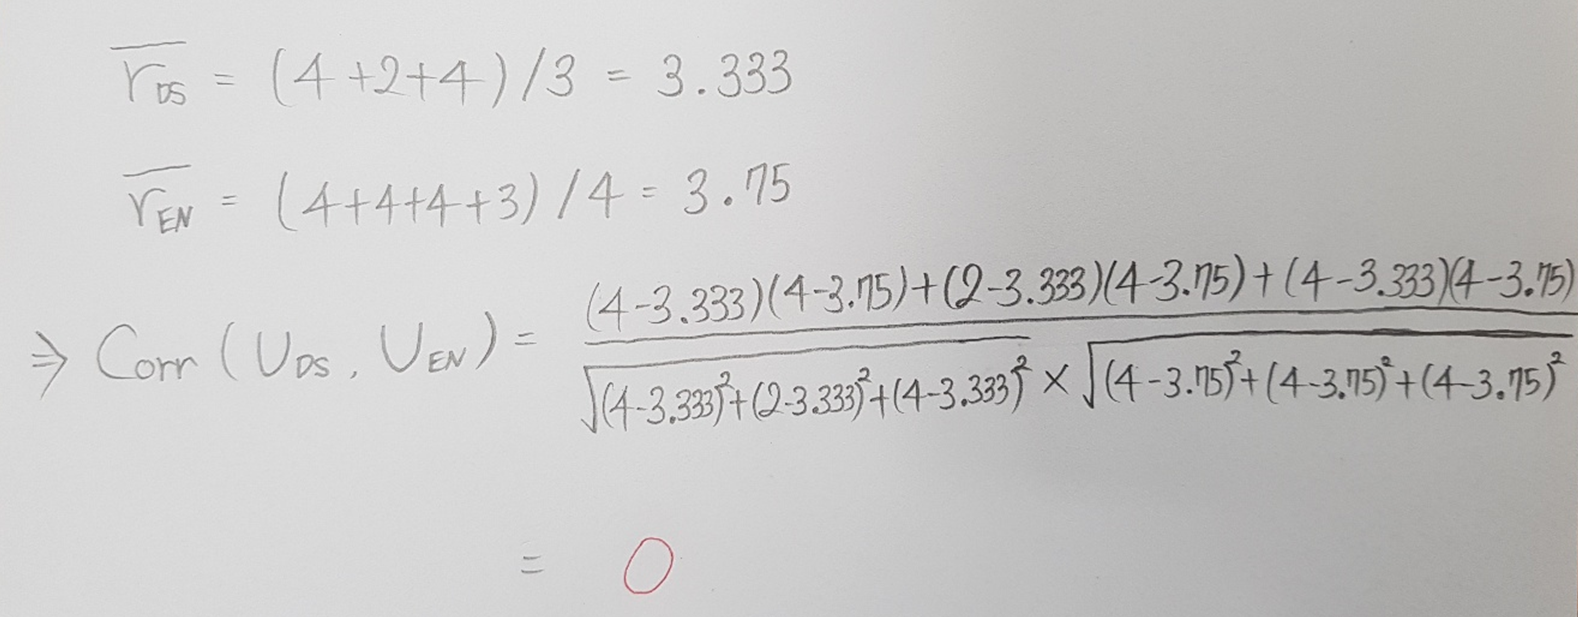 r̅_DS = (4+2+4)/3 = 3.333
r̅_EN = (4+4+4+3)/4 = 3.75
⇒ Corr(U_DS, U_EN) = \frac{(4-3.333)(4-3.75)+(2-3.333)(4-3.75)+(4-3.333)(4-3.75)}{\sqrt{(4-3.333)^2+(2-3.333)^2+(4-3.333)^2} × \sqrt{(4-3.75)^2+(4-3.75)^2+(4-3.75)^2}}
= 0